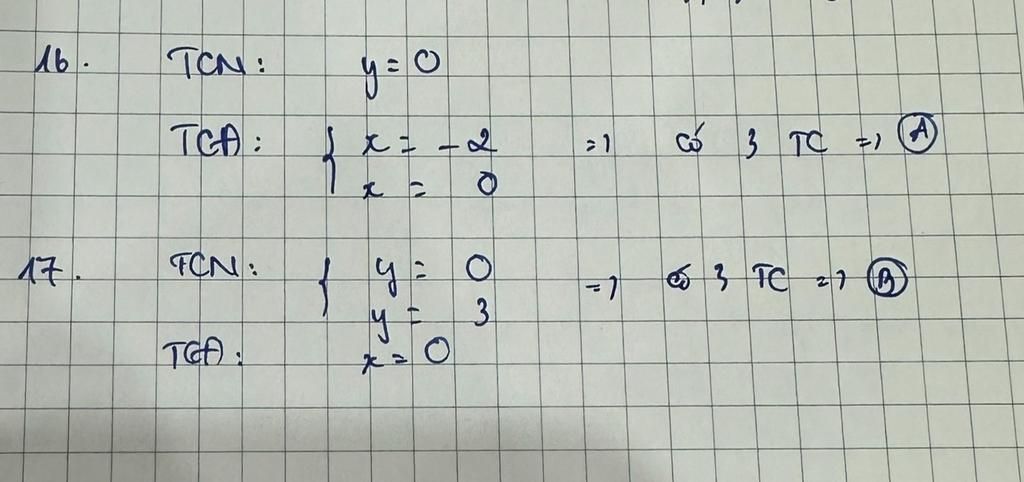 16. TCN: y = 0
TCĐ: { x = -2 => có 3 TC => A
x = 0
17. TCN: { y = 0 => có 3 TC => B
y = 3
TCĐ: x = 0